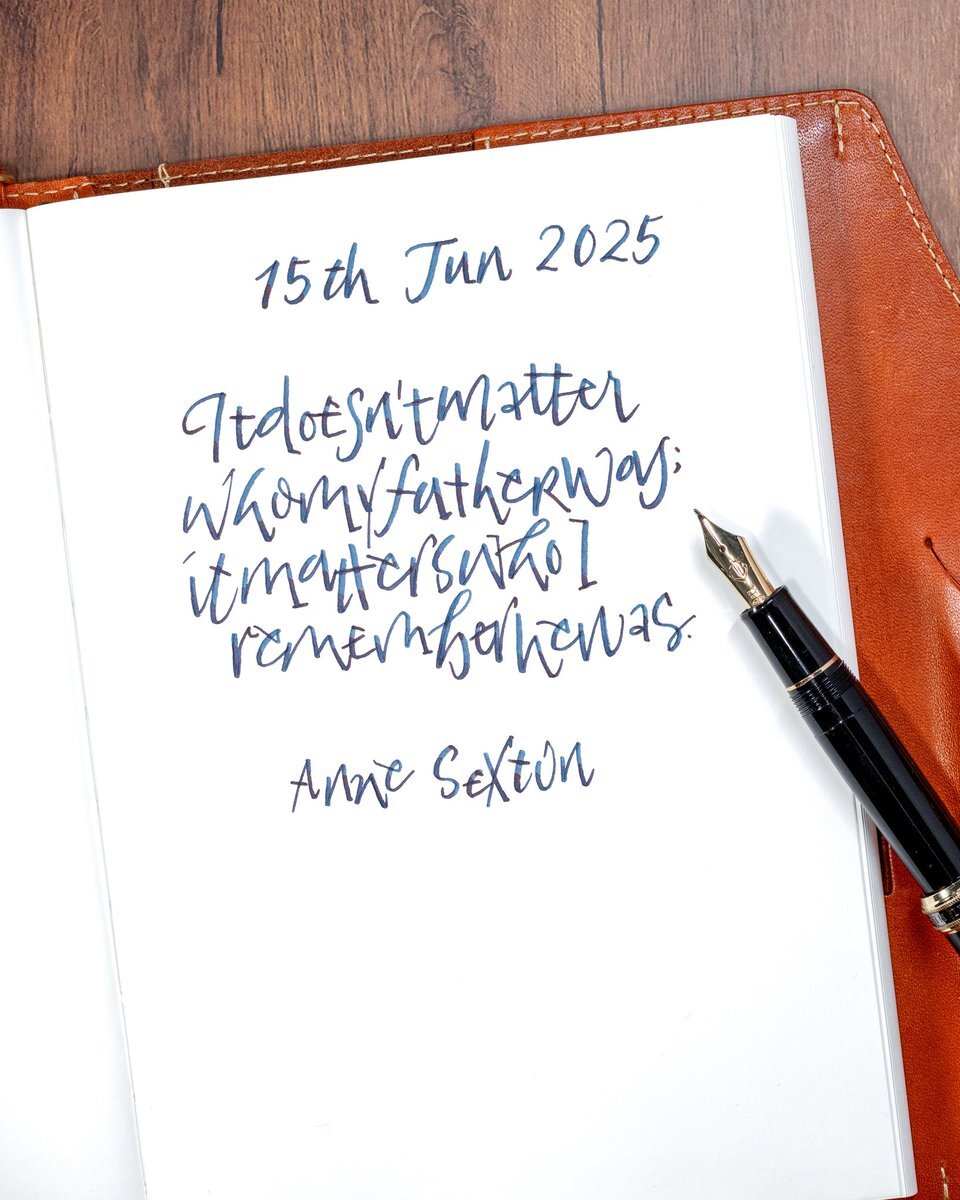 15th Jun 2025
It doesn't matter
who my father was;
it matters who I
remember he was.
Anne Sexton